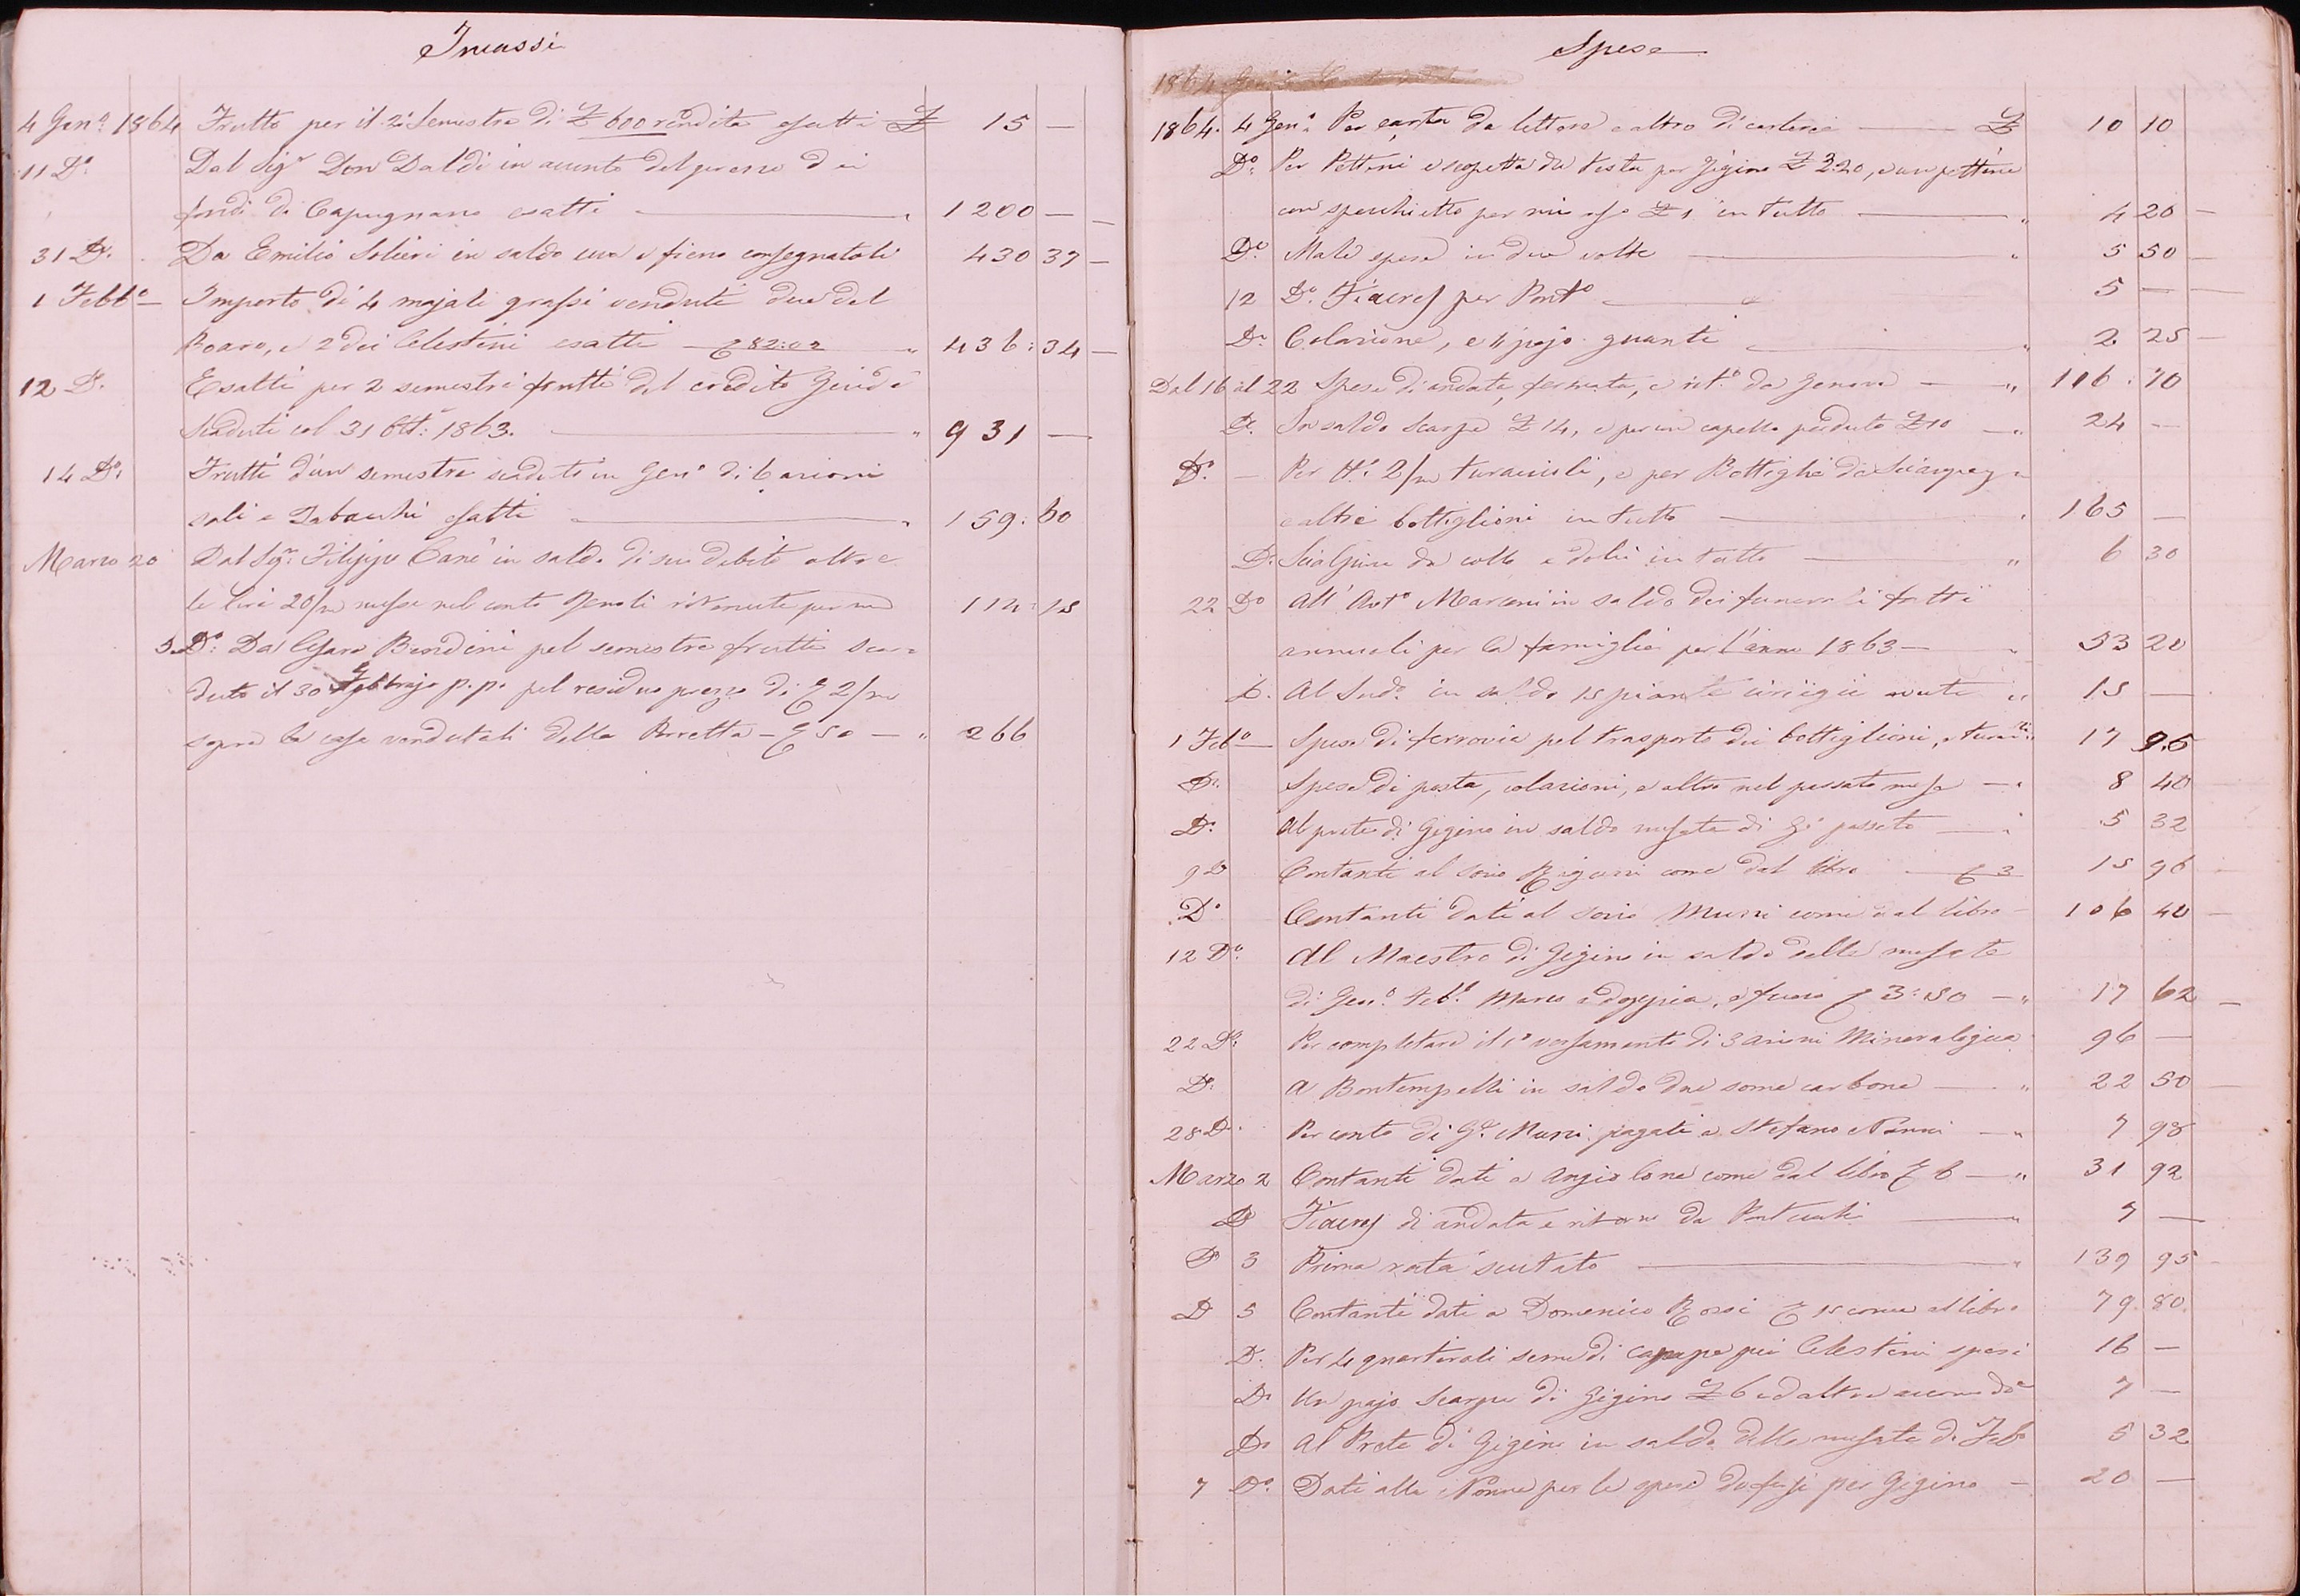 Incassi
4 Genº 1864 Frutto per il 2º Semestre di £ 600 rendita esatti £ 15 —
11 Dº Dal Sigr Don Daldi in acconto del prezzo dei
fondi di Capugnano esatti — " 1200 —
31 Dº Da Emilio Solieri in saldo uva e fieno consegnatoli 430 37 —
1 Febbº — Importo di 4 majali grassi venduti due del
Boaro, e 2 dei Celestini esatti — 82:02 " 436:34 —
12 Dº Esatti per 2 semestri frutti del credito
Scaduti col 31 Ott: 1863. — " 931 —
14 Dº Frutti d'un semestre scaduto in Genº di 6 azioni
sali e Tabacchi esatti — " 159:60
Marzo 20 Dal Sigr Filippo Cané in saldo di suo debito oltre
le lire 20/m messe nel conto 112:15
5 Dº Da Cesare Bendini pel semestre frutti sca-
duto il 30 Febbrajo p.p. pel residuo prezzo di 2/m
sopra la casa vendutali della Porretta — 50 — " 266
Spese
1864. 4 Genº Per carta da lettere e altro di cartoleria — £ 10 10
Dº Per Pettini e scopetta da testa per Gigino £ 3.20, e un pettine
con specchietto per mio uso £ 1 in tutto — " 4 20 —
Dº Male spese in due volte — " 5 50 —
12 Dº Fiacres per Pontº — 5 —
Dº Colazione, e 1 pajo guanti — " 2 25 —
Dal 16 al 22 Spese di andata, fermata, e ritº da Genova — " 116. 70
Dº In saldo Scarpe £ 14, e per un capello perduto £ 10 — " 24 —
Dº — Per Nº 2/m turaccioli, e per Bottiglie da Sciampagna
e altri bottiglioni in tutto — " 165 —
Dº Scialpina da collo e dolci in tutto — " 6 30
22 Dº All' Antº Marconi in saldo dei funerali fatti
annuali per la famiglia per l'anno 1863 — " 53 20
D. Al Sudº in saldo 15 piante avute " 15 —
1 Febº — Spese di ferrovia pel trasporto dei bottiglioni, e 17 96
Dº Spese di posta, colazioni, e altro nel passato mese — " 8 40
Dº Al prete di Gigino in saldo mesata di Gº passato — " 5 32
9 Dº Contanti al socio Rigoni come dal libro — 3 15 96
Dº Contanti dati al socio Muzzi come dal libro 106 40 —
12 Dº Al Maestro di Gigino in saldo delle mesate
di Genº Febº Marzo a doppia, e furono 3:50 — " 17 62 —
22 Dº Per completare il 1º versamento di 3 azioni Mineralogica 96 —
Dº A Bontempelli in saldo due some carbone — " 22 50
28 Dº Per conto di Gº Muzzi pagati a Stefano Nanni — " 7 98
Marzo 2 Contanti dati a Angiolo Cone come dal libro 6 — " 31 92
Dº Fiacres di andata e ritorno da Pontecchi — " 7 —
Dº 3 Prima rata scutato — " 139 95
D 5 Contanti dati a Domenico Rossi 15 come al libro 79. 80
D. Per 4 quartiroli seme di canapa pei Celestini spesi 16 —
Dº Un pajo Scarpe di Gigino £ 6 ed altre accomodº 7 —
Dº Al Prete di Gigino in saldo della mesata di Febº 5 32
7 Dº Dati alla Nonna per le spese da farsi per Gigino — 20 —